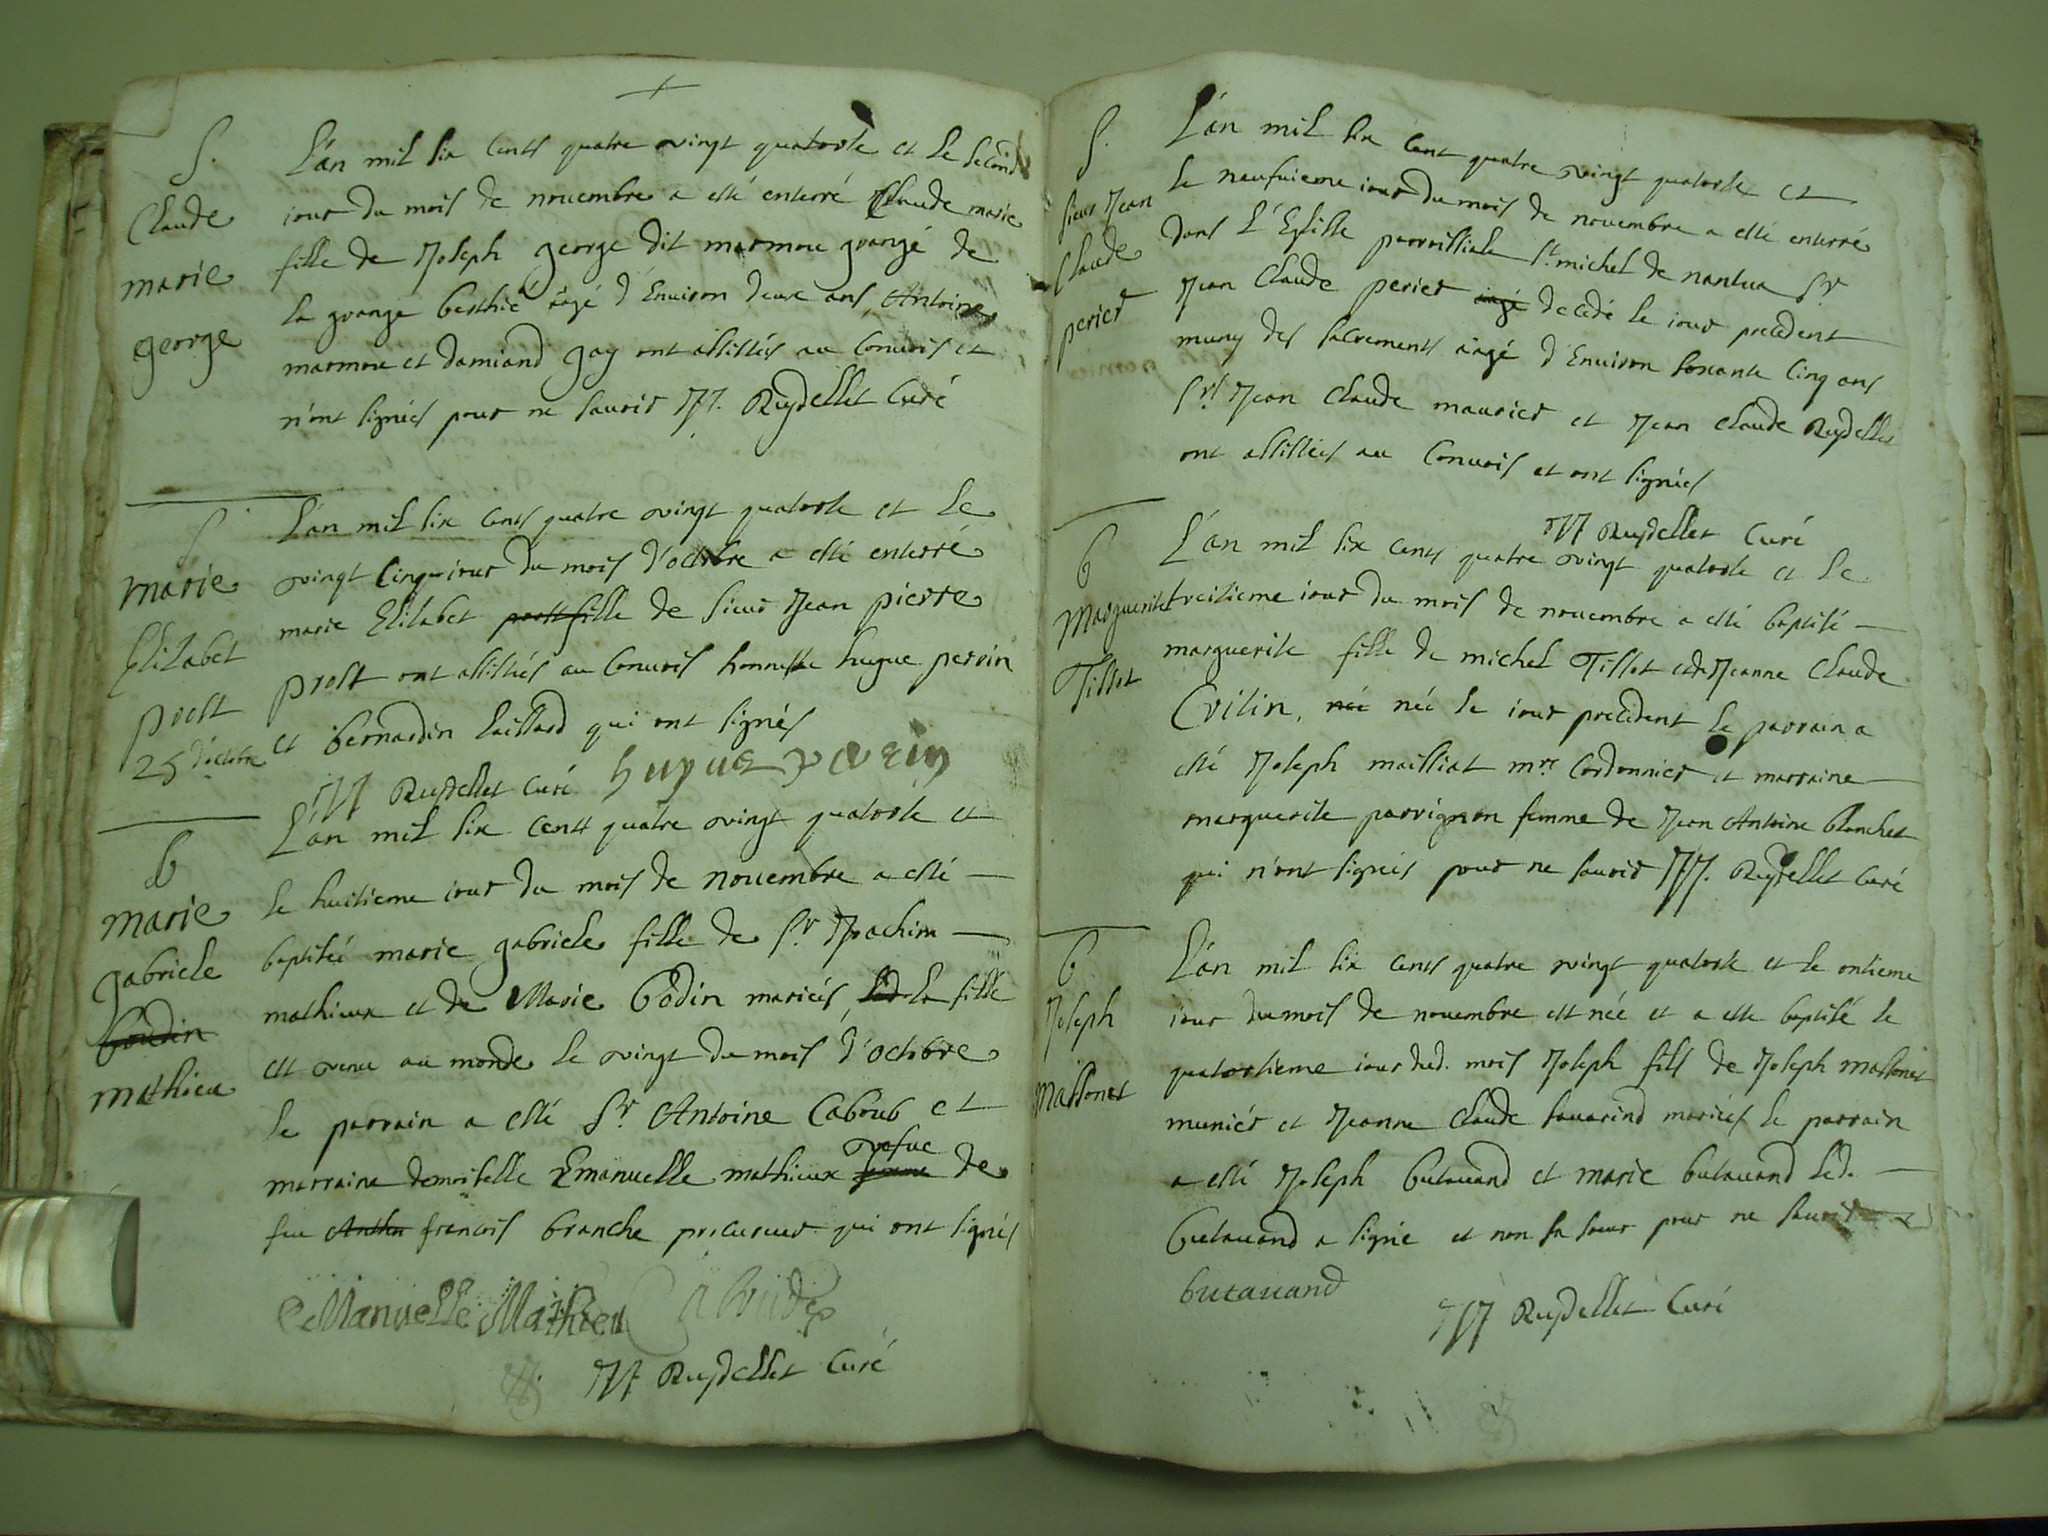 S.
Claude
marie
george
L'an mil six cents quatre vingt quatorse et le second
iour du mois de novembre a esté enterré Claude marie
fille de Joseph george dit marmou grangé de
la grange berthié aagé d'Environ deux ans, Antoine
marmou et damiand gay ont assistés au Convois et
n'ont signés pour ne sauoir JM. Ruydellet Curé
S.
marie
Elizabet
prost
25 d'octobre
L'an mil six cents quatre vingt quatorse et Le
vingt Cinq iour du mois d'octobre a esté enterré
marie Elisabet prost fille de sieur Jean pierre
prost ont assistés au Convois honneste hugue perrin
et bernardin Caillard qui ont signés
JM Ruydellet Curé hugue perrin
b
marie
gabriele
bondin
mathieu
L'an mil six cents quatre vingt quatorse et
le huitieme iour du mois de nouembre a esté
baptisée marie gabriele fille de Sr Joachim
mathieux et de Marie bodin mariés, led. la fille
est venu au monde le vingt du mois d'octobre
le parrain a esté Sr Antoine Caboud et
vefue
marraine demoiselle Emanuelle mathieux femme de
feu francois branche procureur qui ont signés
eManuelle Mathieu
JM Ruydellet Curé
S.
sieur Jean
Claude
perier
L'an mil six Cent quatre vingt quatorse et
le neufuieme iour du mois de novembre a esté enterré
dans L'Eglisse parroissiale St michel de nantua Sr
Jean Claude perier aagé decedé le iour precedent
muny des sacrements aagé d'Environ soxante Cinq ans
Srs Jean Claude maurier et Jean Claude Ruydellet
ont assistés au Convois et ont signés
JM Ruydellet Curé
b
Marguerite
Tillot
L'an mil six cents quatre vingt quatorse et Le
treisieme iour du mois de nouembre a esté baptisé
marguerite fille de michel Tillot et de Jeanne Claude
Crilin, née née le iour precedent le parrain a
esté Joseph mailliat mre Cordonnier et marraine
marguerite parrignon femme de Jean Antoine blanchet
qui n'ont signés pour ne sauoir JM. Ruydellet Curé
b
Joseph
Massonet
L'an mil six cents quatre vingt quatorse et le onsieme
iour du mois de nouembre est née et a este baptisé le
quatorsieme iour dud. mois Joseph fils de Joseph massonet
munier et Jeanne Claude sauarind mariés le parrain
a esté Joseph butauand et marie butauand led.
butauand a signé et non sa soeur pour ne sauoir
butauand
JM Ruydellet Curé